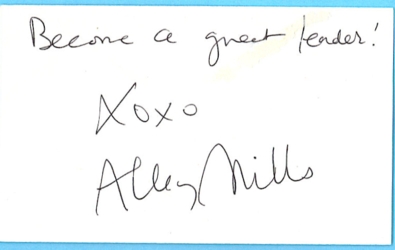 Become a great leader!
Xoxo
Alley Mills